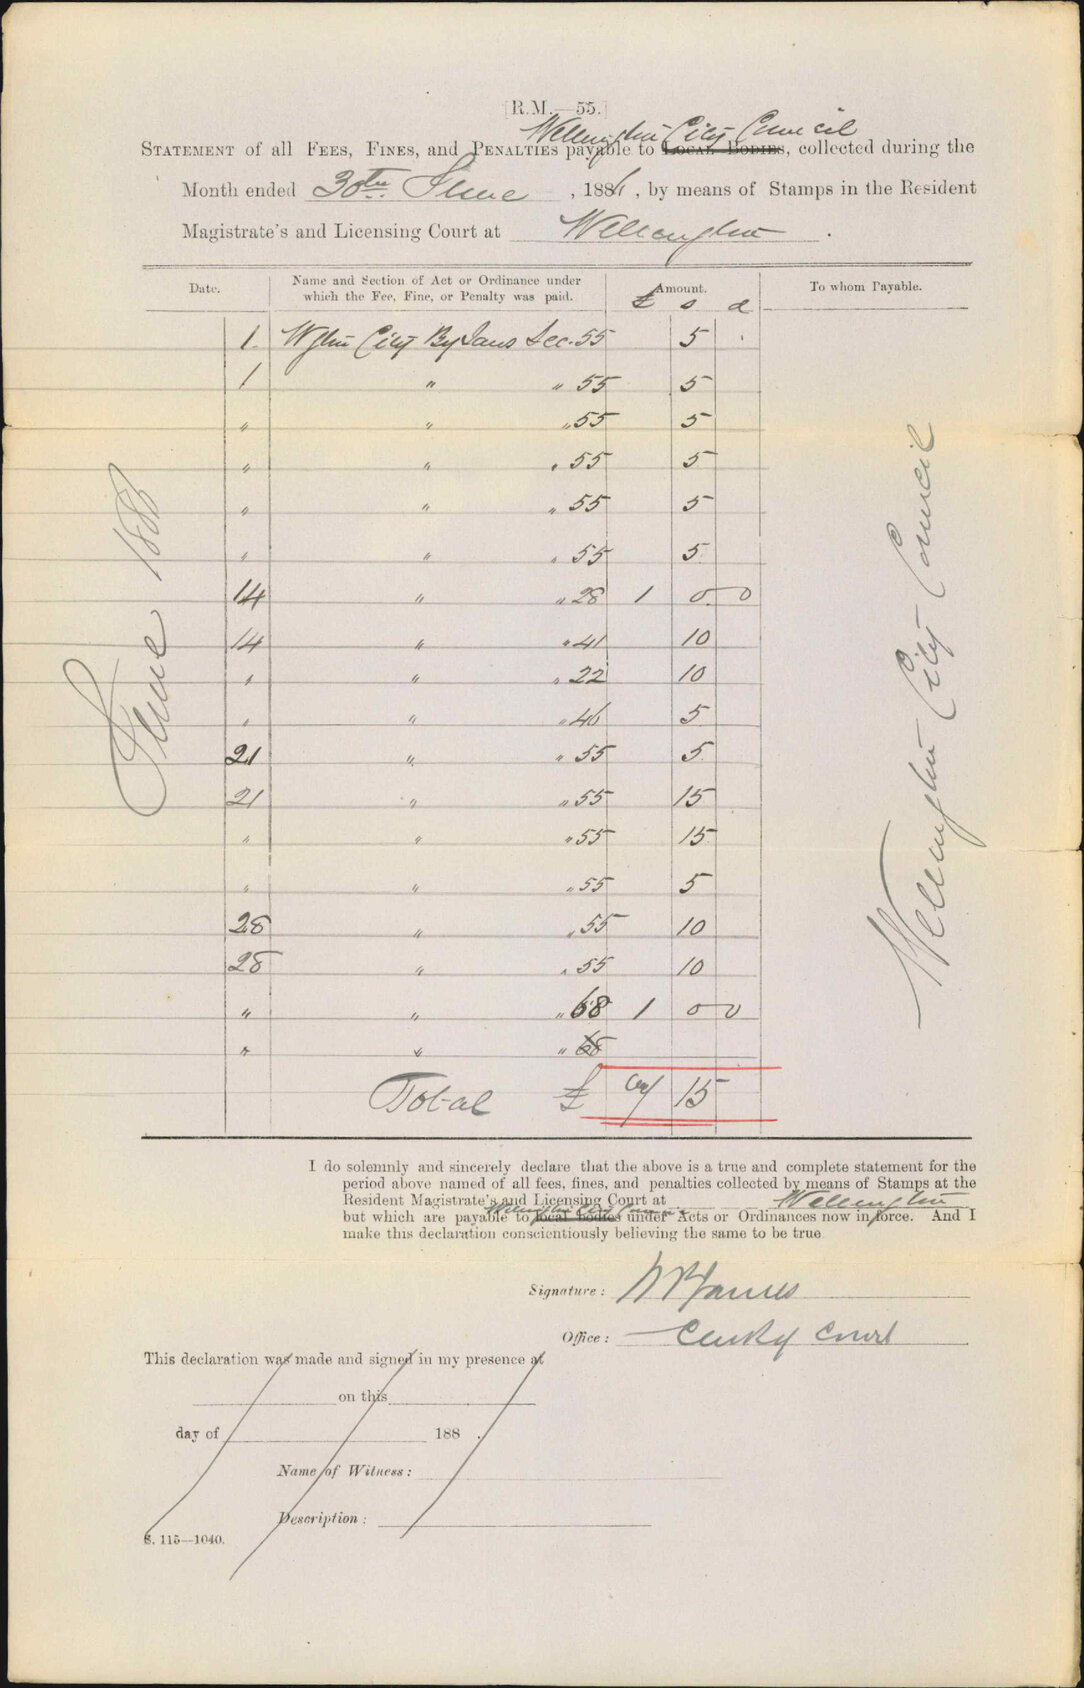 [R.M.—55.]
Wellington City Council
STATEMENT of all FEES, FINES, and PENALTIES payable to LOCAL BODIES, collected during the
Month ended 30th June, 1886, by means of Stamps in the Resident
Magistrate's and Licensing Court at Wellington.
Date. Name and Section of Act or Ordinance under which the Fee, Fine, or Penalty was paid. Amount. To whom Payable.
£ s d
1. Wgtn City By Laws Sec. 55 5
1 " " 55 5
" " " 55 5
" " " 55 5
" " " 55 5
" " " 55 5
14 " " 28 1 0 0
14 " " 41 10
" " " 22 10
" " " 46 5
21 " " 55 5
21 " " 55 15
" " " 55 15
" " " 55 5
28 " " 55 10
28 " " 55 10
" " " 68 1 0 0
" " " 68
Total £ 15
June 1886
Wellington City Council
I do solemnly and sincerely declare that the above is a true and complete statement for the
period above named of all fees, fines, and penalties collected by means of Stamps at the
Resident Magistrate's and Licensing Court at Wellington
Wellington City Council
but which are payable to local bodies under Acts or Ordinances now in force. And I
make this declaration conscientiously believing the same to be true.
Signature:
Office: Clerk of Court
This declaration was made and signed in my presence at
on this
day of 188 .
Name of Witness:
Description:
S. 115—1040.